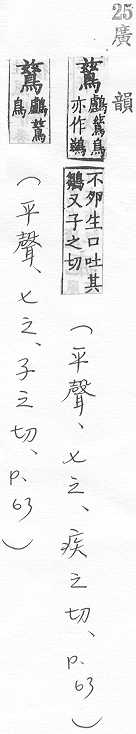 25 廣韻
鷀 鸕鷀鳥
亦作鶿
不卵生口吐其
鶵又子之切
（平聲、七之、疾之切、p.63）
鷀 鸕鷀
鳥
（平聲、七之、子之切、p.63）